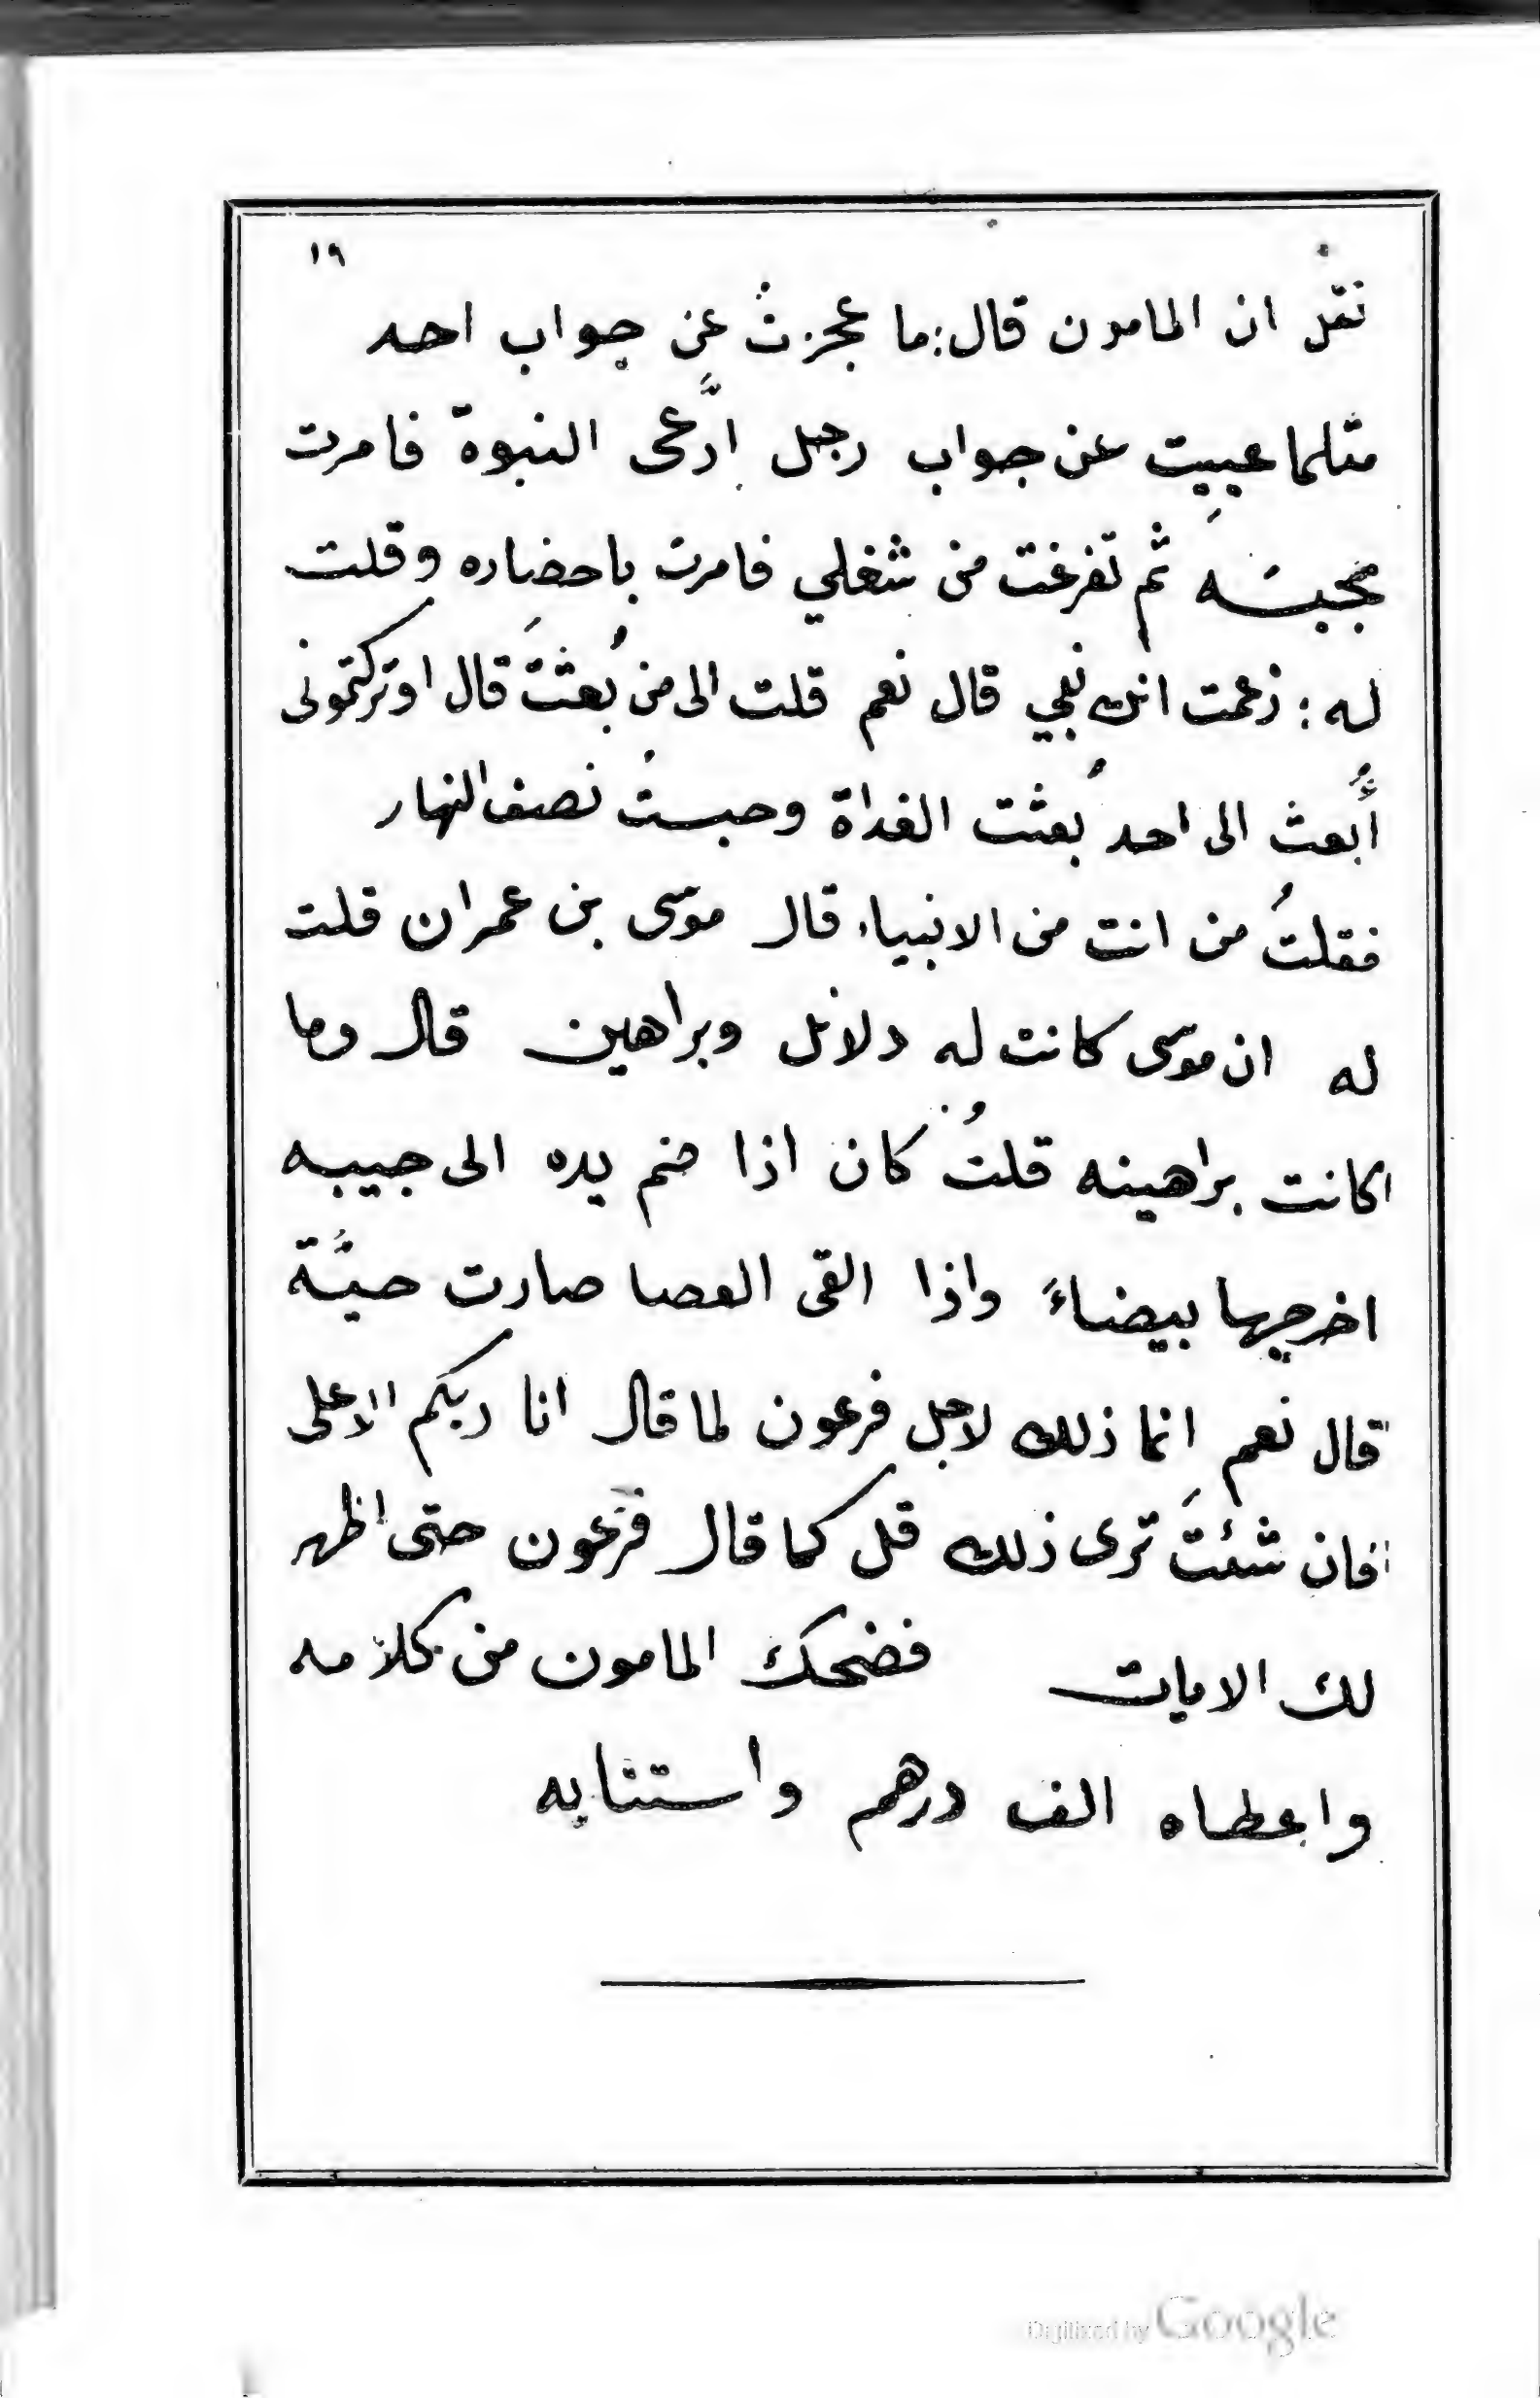 ١٩
نقل ان المامون قال: ما عجزتُ عن جواب احد
مثلما عييت عن جواب رجل ادَّعى النبوة فامرت
بحبسه ثم تفرغت من شغلي فامرت باحضاره وقلت
له: زعمت انك نبي قال نعم قلت الى من بُعثتَ قال اوتركتموني
أُبعث الى احد بُعثت الغداة وحبستُ نصف النهار
فقلتُ من انت من الانبياء قال موسى بن عمران قلت
له ان موسى كانت له دلائل وبراهين قال وما
كانت براهينه قلتُ كان اذا ضم يده الى جيبه
اخرجها بيضاءً واذا القى العصا صارت حيَّة
قال نعم انما ذلك لاجل فرعون لما قال انا ربكم الاعلى
فان شئتَ ترى ذلك قل كما قال فرعون حتى اظهر
لك الايات فضحك المامون من كلامه
واعطاه الف درهم واستتابه
Digitized by Google